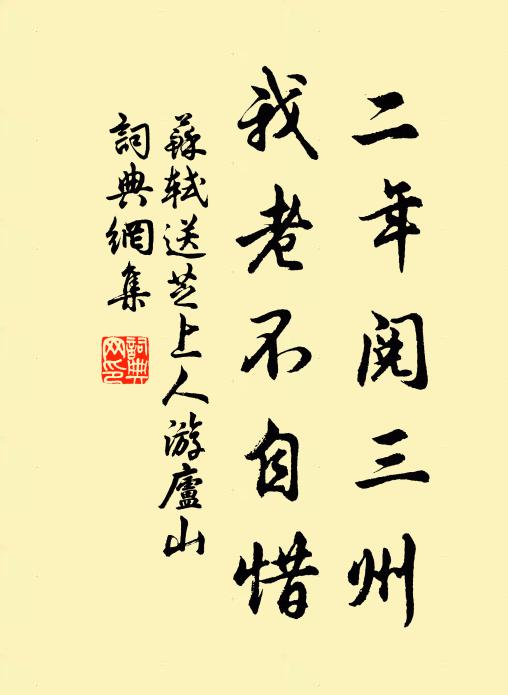 二年閱三州
我老不自惜
蘇軾送芝上人游廬山
詞典網集
詞典網印